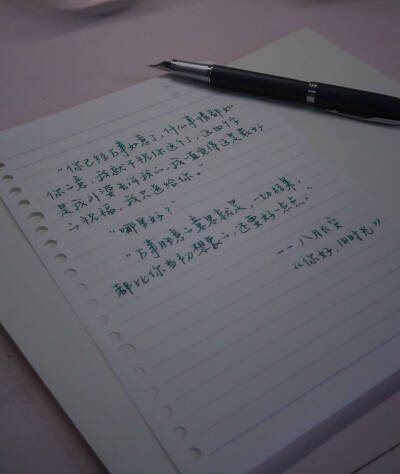 “你已经万事如意了，什么事情都如
你心意，我就不祝你这个了，这四个字
是我外婆告诉我的，我一直觉得这是最好
的祝福，我只送给你。”
“哪里好？”
“万事胜意的意思就是，一切结果，
都比你当初想象的，还要好一点点。”
—— 八月长安
《你好，旧时光》